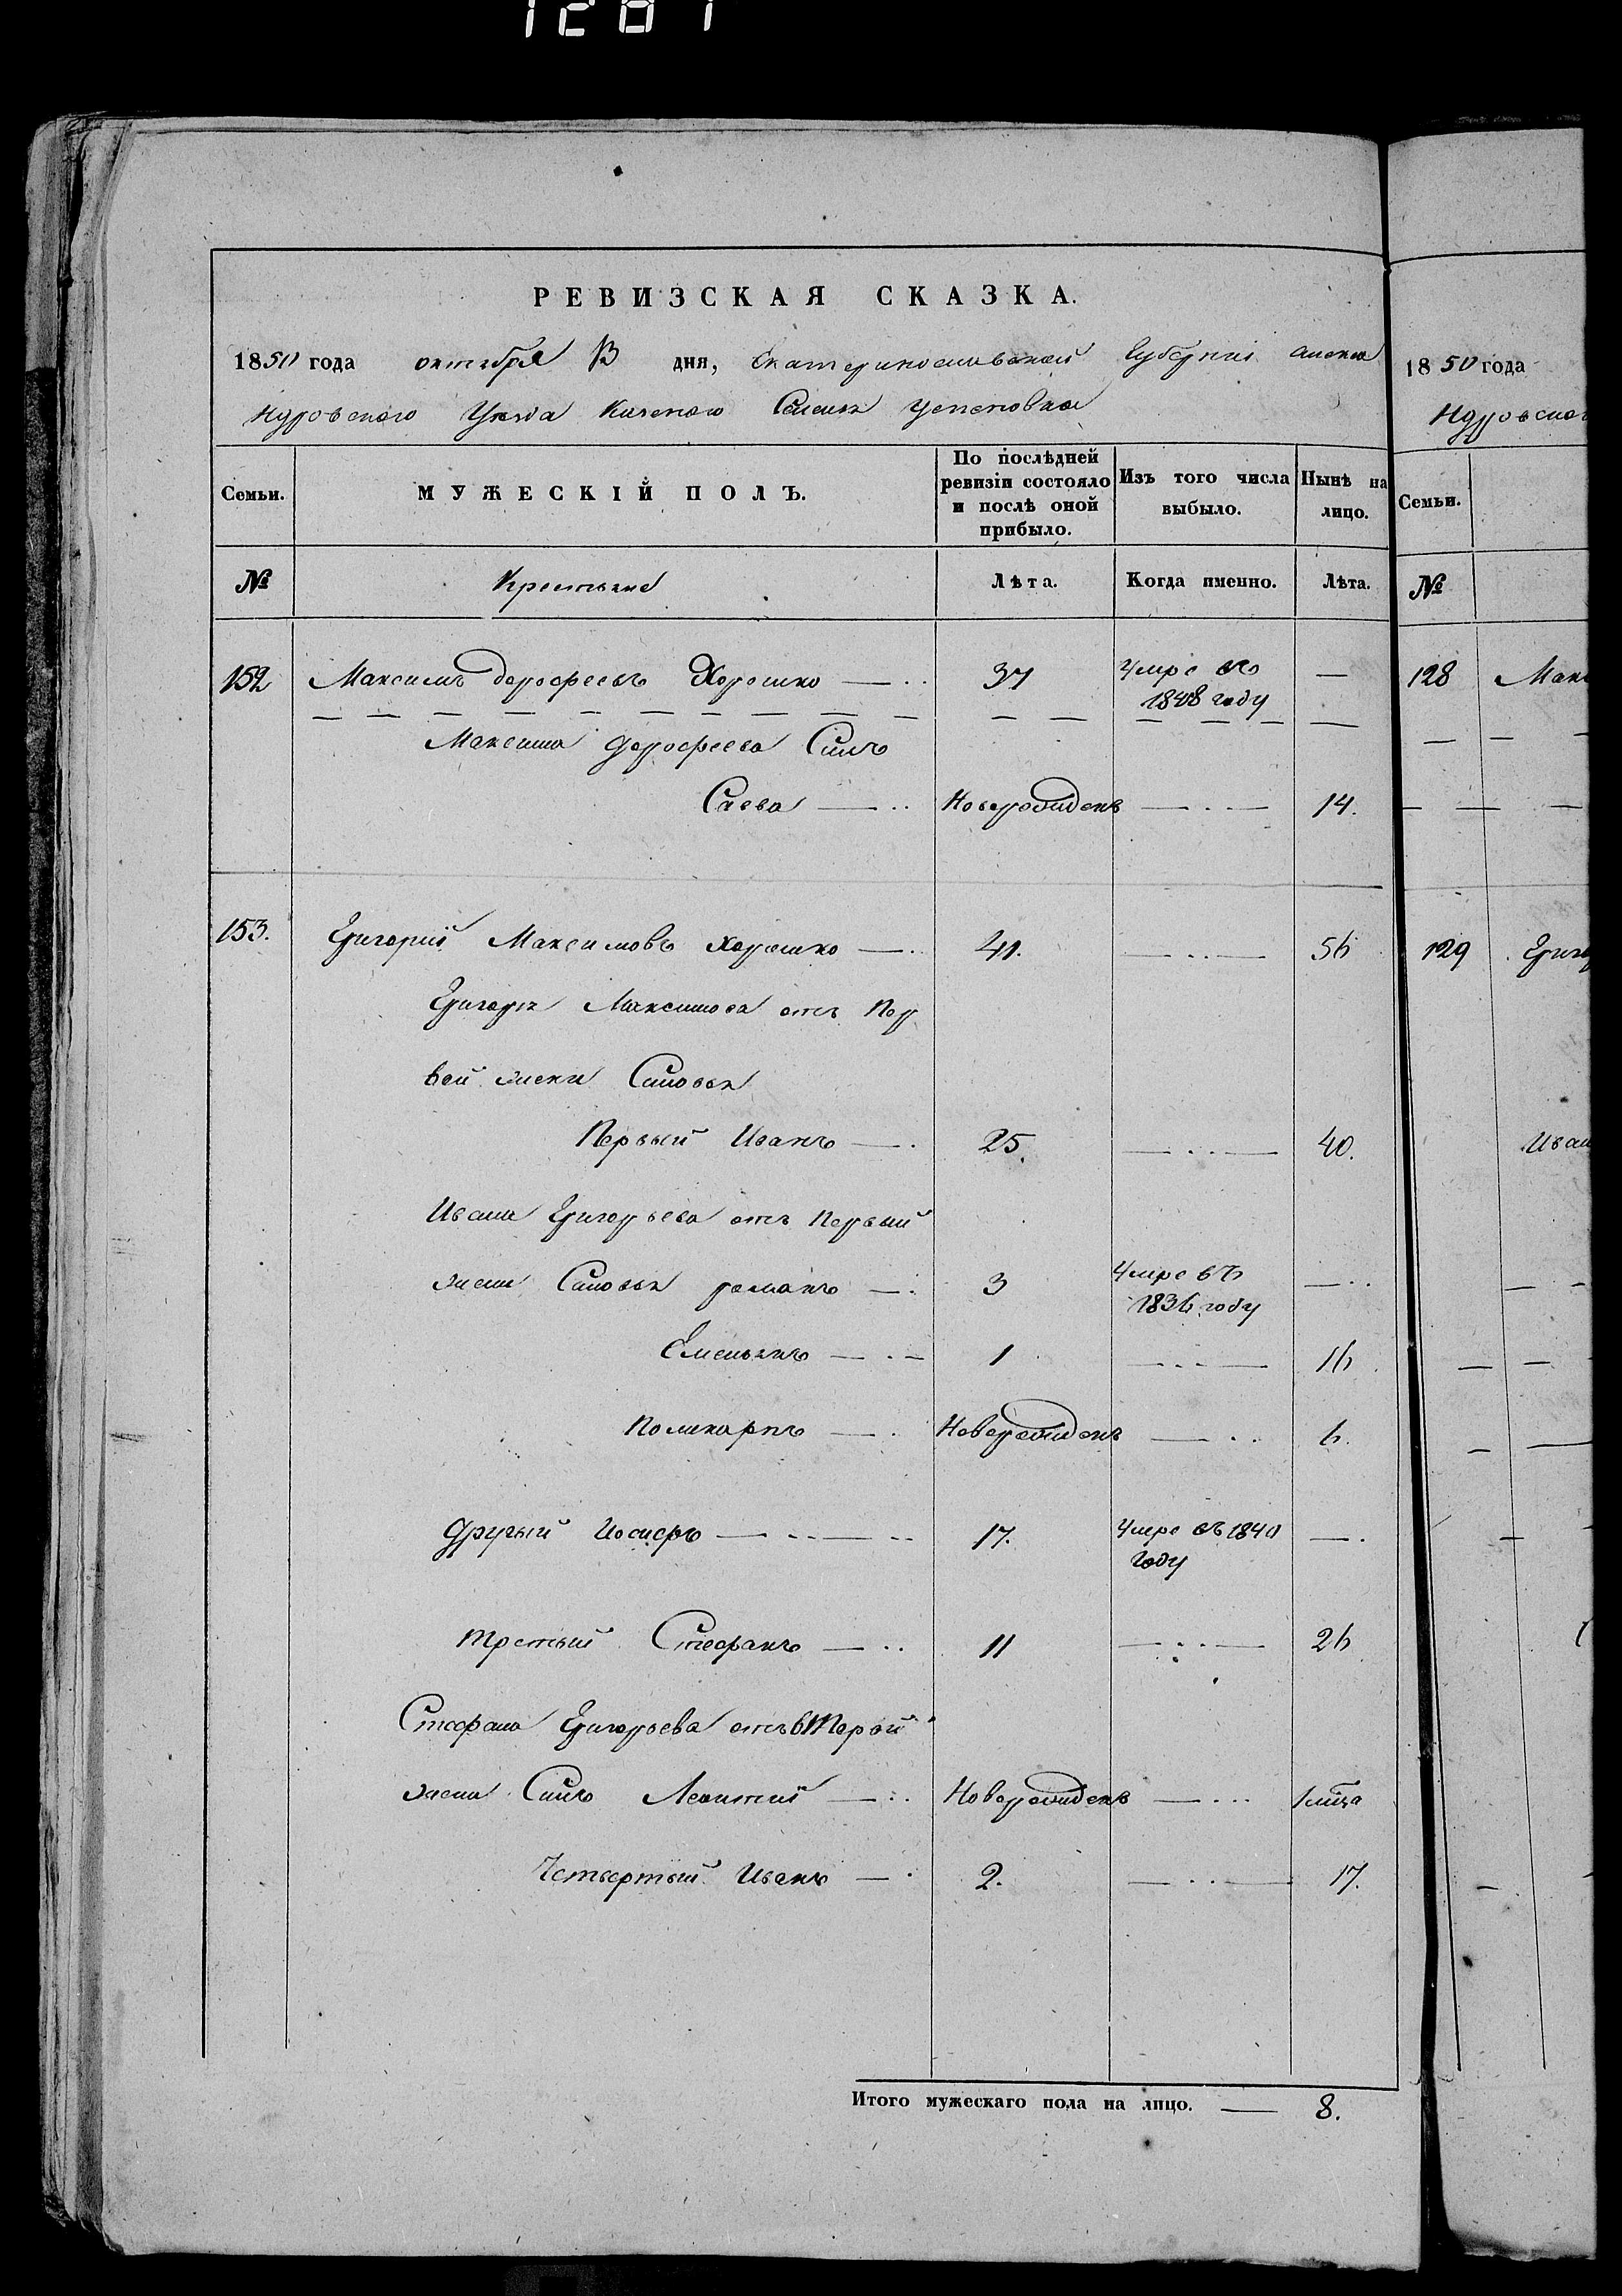 1281
РЕВИЗСКАЯ СКАЗКА.
1850 года октября 13 дня, Екатеринославской Губернии Алекса
ндровского Уезда Казеного Селения
Семьи. МУЖЕСКІЙ ПОЛЪ. По послѣдней ревизіи состояло и послѣ оной прибыло. Изъ того числа выбыло. Нынѣ на лицо.
№ Крестьяне Лѣта. Когда именно. Лѣта.
152 Максимъ дорофеевъ Хорошко 37 Умре въ 1848 году —
Максима дорофеева Сынъ
Савва Новорожденъ 14.
153. Григорий Максимовъ Хорошко 41. 56
Григория Максимова отъ Пер
вой жены Сыновья
Первый Иванъ 25. 40.
Ивана Григорьева отъ Первый
жены Сыновья романъ 3 Умре въ 1836 году —
Емельянъ 1 16
Поликарпъ Новорожденъ 6.
другый Иосифъ 17. Умре въ 1840 году —
третый Стефанъ 11 26
Стефана Григорьева отъ вторай
жены Сынъ Леонтий Новорожденъ 1 лица
Четвертый Иванъ 2. 17.
Итого мужескаго пола на лицо. — 8.
1850 года
ндровског
Семьи.
№
128 Мак
129 Григо
Иван